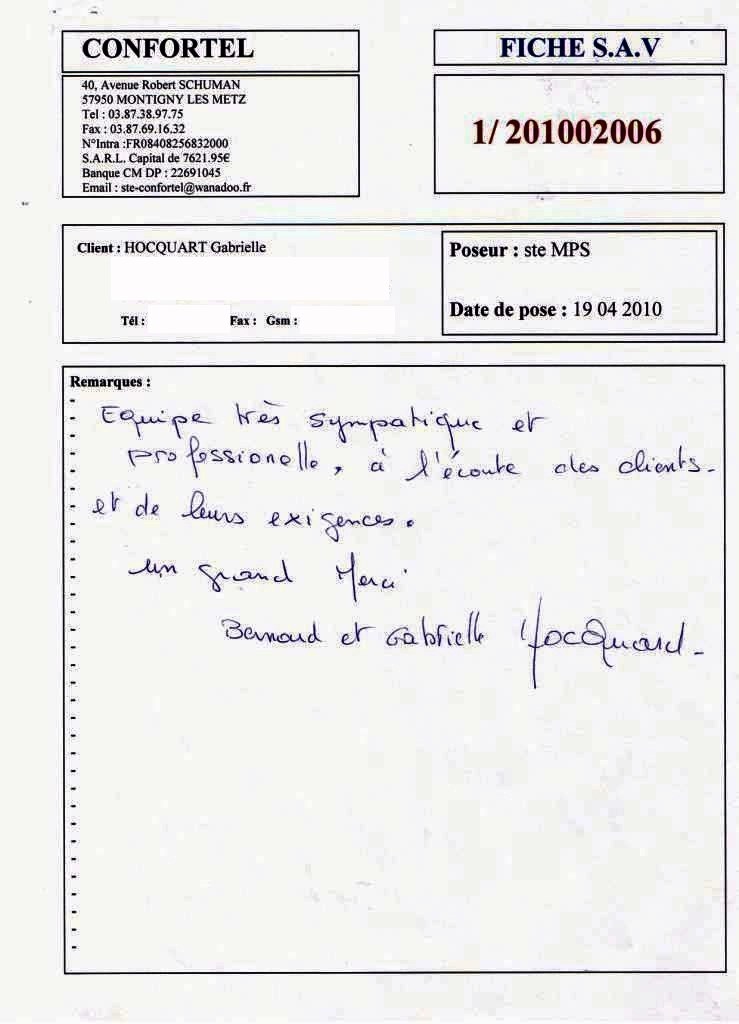 CONFORTEL
40, Avenue Robert SCHUMAN
57950 MONTIGNY LES METZ
Tel : 03.87.38.97.75
Fax : 03.87.69.16.32
N°Intra :FR08408256832000
S.A.R.L. Capital de 7621.95€
Banque CM DP : 22691045
Email : ste-confortel@wanadoo.fr
FICHE S.A.V
1/ 201002006
Client : HOCQUART Gabrielle
Tél : Fax : Gsm :
Poseur : ste MPS
Date de pose : 19 04 2010
Remarques :
Equipe très sympatique et
professionelle, à l'écoute des clients
et de leurs exigences.
un grand Merci
Bernard et Gabrielle HocQuard